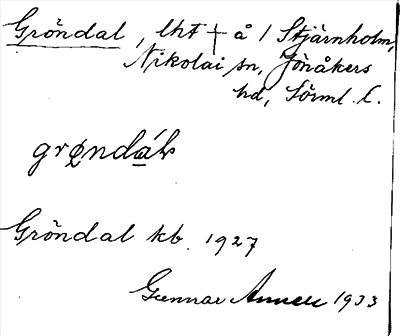 Gröndal, lht † å / Stjärnholm,
Nikolai sn, Jönåkers
hd, Sörml. l.
grøndáls
Gröndal kb. 1927
Gunnar 1933